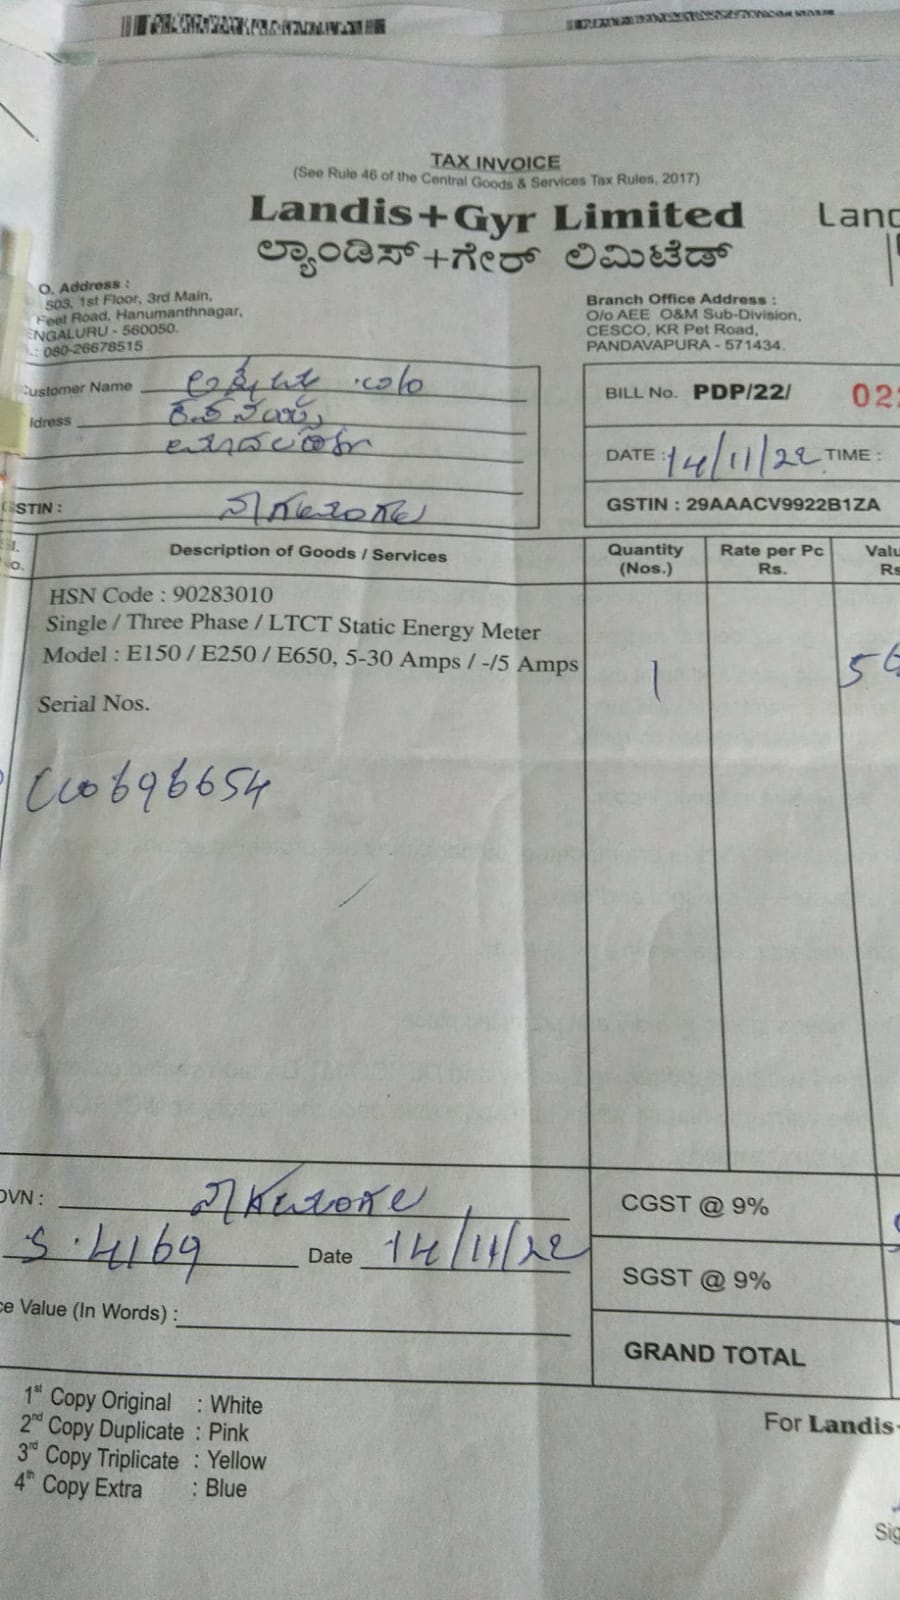 TAX INVOICE
(See Rule 46 of the Central Goods & Services Tax Rules, 2017)
Landis+Gyr Limited
Land
ಲ್ಯಾಂಡಿಸ್+ಗೇರ್ ಲಿಮಿಟೆಡ್
O. Address :
503, 1st Floor, 3rd Main,
Feet Road, Hanumanthnagar,
ENGALURU - 560050.
.: 080-26678515
Branch Office Address :
O/o AEE O&M Sub-Division,
CESCO, KR Pet Road,
PANDAVAPURA - 571434.
ustomer Name
ldress
STIN :
BILL No. PDP/22/ 02
DATE : 14/11/22 TIME :
GSTIN : 29AAACV9922B1ZA
l.
o.
Description of Goods / Services
Quantity
(Nos.)
Rate per Pc
Rs.
Valu
Rs
HSN Code : 90283010
Single / Three Phase / LTCT Static Energy Meter
Model : E150 / E250 / E650, 5-30 Amps / -/5 Amps
1
5
Serial Nos.
696654
OVN :
S.4169 Date 14/11/22
ce Value (In Words) :
CGST @ 9%
SGST @ 9%
GRAND TOTAL
1st Copy Original : White
2nd Copy Duplicate : Pink
3rd Copy Triplicate : Yellow
4th Copy Extra : Blue
For Landis
Sig